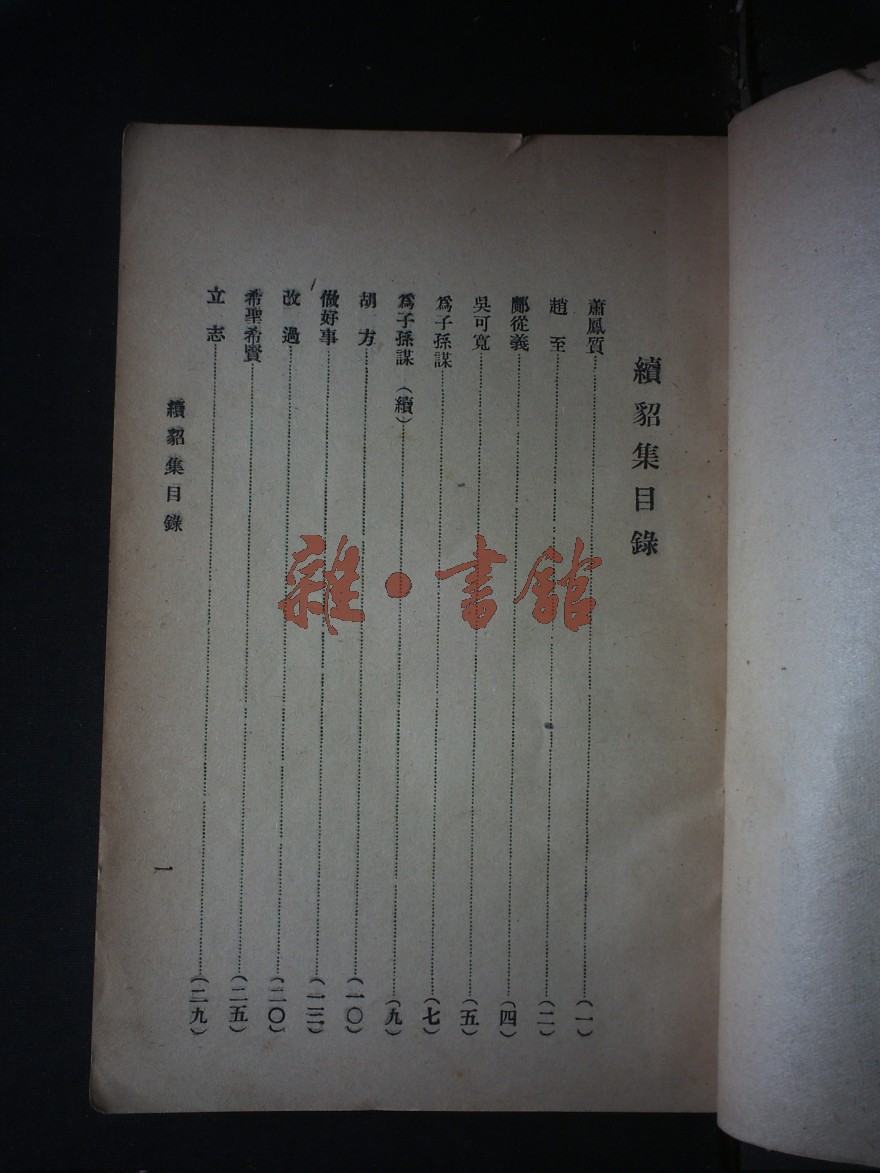 續貂集目錄
蕭鳳質……(一)
趙至……(二)
鄺從義……(四)
吳可寬……(五)
爲子孫謀……(七)
爲子孫謀(續)……(九)
胡方……(一〇)
做好事……(一三)
改過……(二〇)
希聖希賢……(二五)
立志……(二九)
續貂集目錄
一
雜·書館